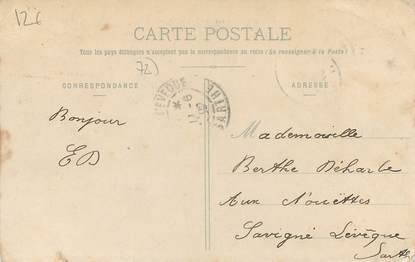 126
CARTE POSTALE
Tous les pays étrangers n'acceptent pas la correspondance au recto (Se renseigner à la Poste)
72)
CORRESPONDANCE
ADRESSE
EVEQUE
SARTHE
Bonjour
ED
Mademoiselle
Berthe Béharle
Aux Nouëttes
Savigné Lévêque
Sarth